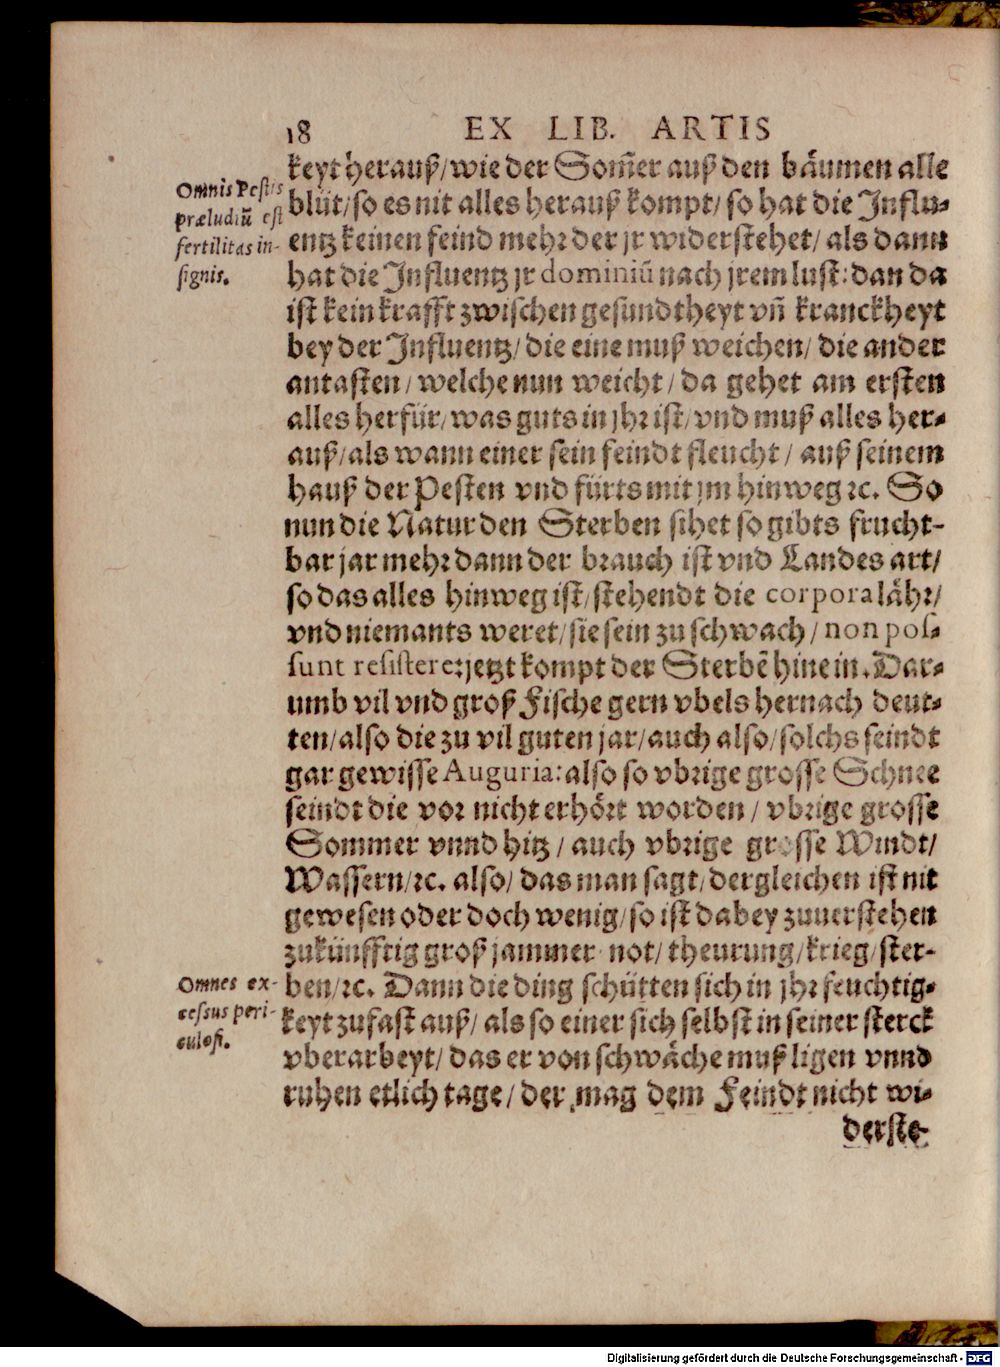 18 EX LIB. ARTIS
keyt herauß/wie der Som̃er auß den bäumen alle
Omnis Pestis
blüt/so es nit alles herauß kompt/so hat die Influ-
præludiũ est
entz keinen feind mehr der jr widerstehet/als dann
fertilitas in-
hat die Influentz jr dominiũ nach jrem lust: dan da
signis.
ist kein krafft zwischen gesundtheyt vñ kranckheyt
bey der Influentz/die eine muß weichen/die ander
antasten/welche nun weicht/da gehet am ersten
alles herfür/was guts in jhr ist/vnd muß alles her-
auß/als wann einer sein feindt fleucht/auß seinem
hauß der Pesten vnd fürts mit jm hinweg ꝛc. So
nun die Natur den Sterben sihet so gibts frucht-
bar jar mehr dann der brauch ist vnd Landes art/
so das alles hinweg ist/stehendt die corpora lähr/
vnd niemants weret/sie sein zu schwach/non pos-
sunt resistere: jetzt kompt der Sterbẽ hinein. Dar-
umb vil vnd groß Fische gern vbels hernach deut-
ten/also die zu vil guten jar/auch also/solchs seindt
gar gewisse Auguria: also so vbrige grosse Schnee
seindt die vor nicht erhört worden/vbrige grosse
Sommer vnnd hitz/auch vbrige grosse Windt/
Wassern/ꝛc. also/das man sagt/dergleichen ist nit
gewesen oder doch wenig/so ist dabey zuuerstehen
zukünfftig groß jammer not/theurung/krieg/ster-
Omnes ex-
ben/ꝛc. Dann die ding schütten sich in jhr feuchtig-
cessus peri-
keyt zufast auß/als so einer sich selbst in seiner sterck
culosi.
vberarbeyt/das er von schwäche muß ligen vnnd
ruhen etlich tage/der mag dem Feindt nicht wi-
derste-
Digitalisierung gefördert durch die Deutsche Forschungsgemeinschaft - DFG